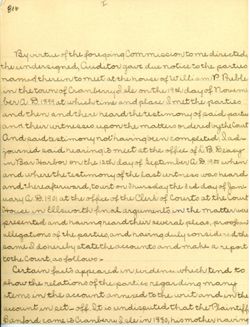 816
1
By virtue of the foregoing Commission to me directed,
the undersigned, Auditor gave due notice to the parties
named therein to meet at the house of William P. Preble
in the town of Cranberry Isles on the 19th day of Novem
ber A.D. 1899 at which time and place I met the parties
and then and there heard the testimony of said parties
and their witnesses upon the matters ordered by the Court
And said testimony not having been completed I ad-
journed said hearing to meet at the office of L. B. Deasy
in Bar Harbor on the 12th day of September A.D. 1900 when
and where the testimony of the last witness was heard
and thereafterward, to wit on Thursday the 3rd day of Janu
ary A.D. 1901 at the office of the Clerk of Courts at the Court
House in Ellsworth final arguments in the matter was
presented and having heard their several pleas, proofs and
allegations of the parties, and having duly considered the
same I do hereby state the accounts and make a report
to the Court, as follows:-
Certain facts appeared in evidence which tend to
show the relations of the parties regarding many
items in the account annexed to the writ and in the
account in set-off. It is undisputed that the Plaintiff
Sanford came to Cranberry Isle in 1890, his mother having